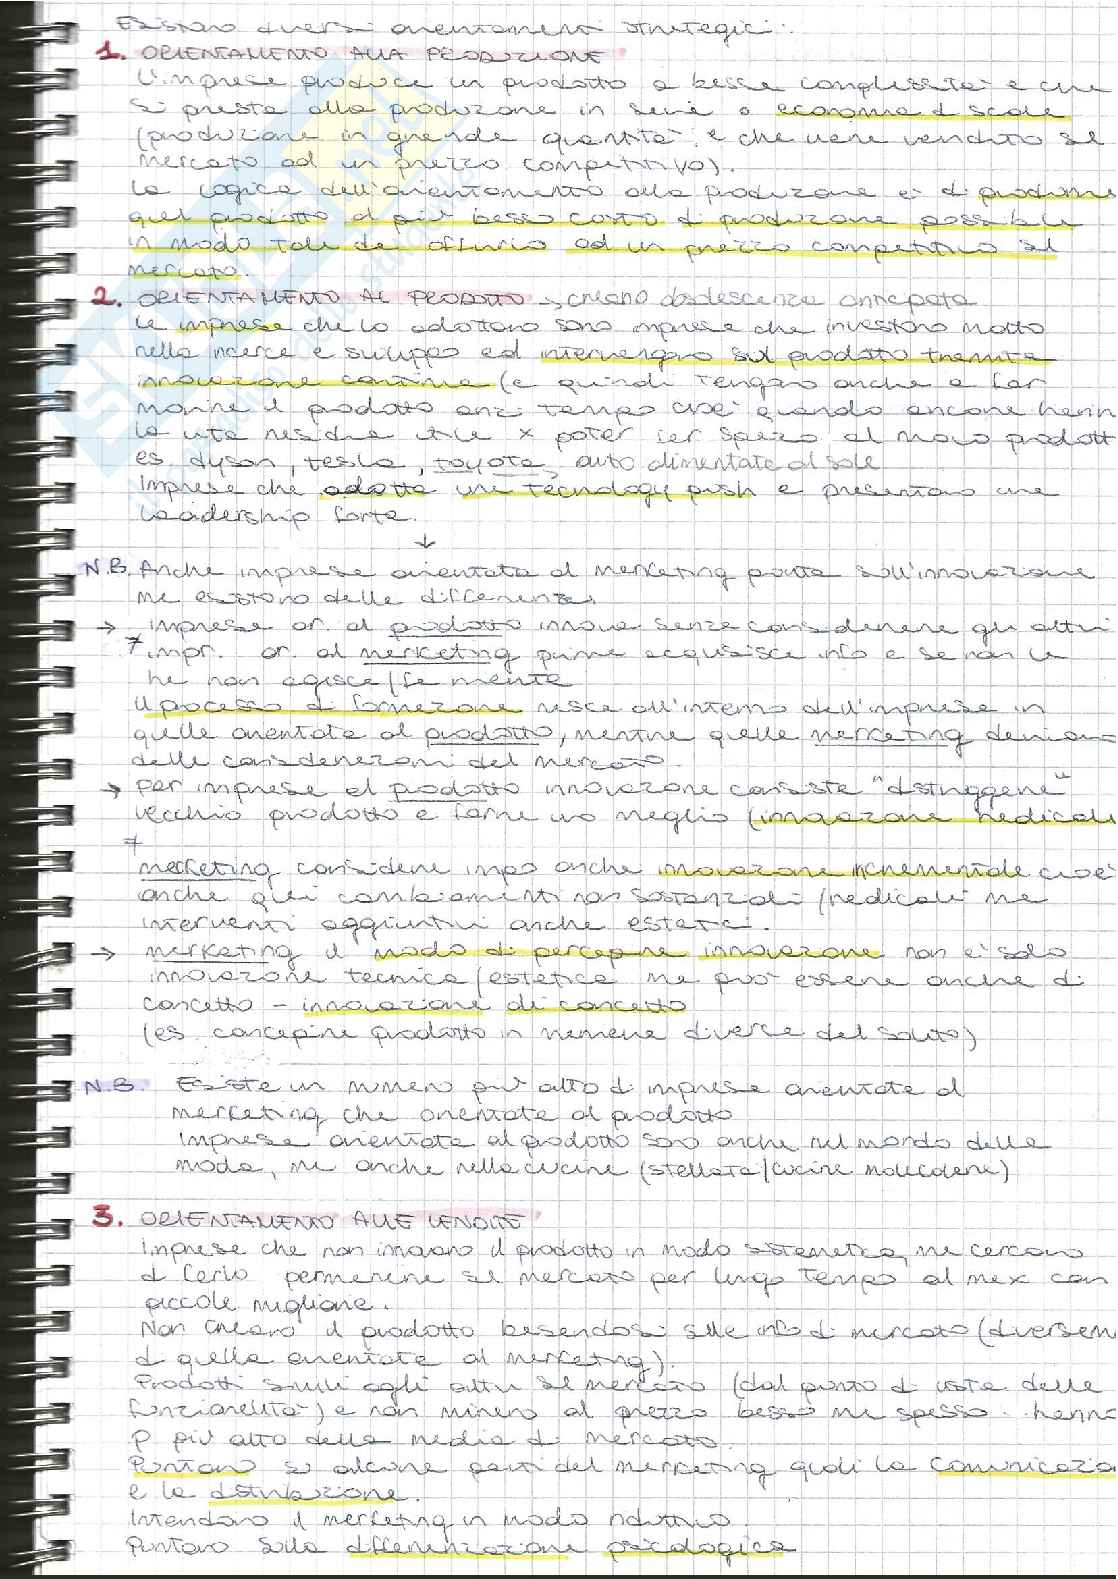 Esistono diversi orientamenti strategici:
1. ORIENTAMENTO ALLA PRODUZIONE
L'impresa produce un prodotto a bassa complessità e che
si presta alla produzione in serie o economia di scala
(produzione in grande quantità e che viene venduto sul
mercato ad un prezzo competitivo).
La logica dell'orientamento alla produzione è di produrre
quel prodotto al più basso costo di produzione possibile
in modo tale da offrirlo ad un prezzo competitivo sul
mercato.
2. ORIENTAMENTO AL PRODOTTO → creano obsolescenza anticipata
Le imprese che lo adottano sono imprese che investono molto
nella ricerca e sviluppo ed intervengono sul prodotto tramite
innovazione continua (e quindi tengono anche a far
morire il prodotto anzi tempo cioè quando ancora havrin
la vita residua utile x poter far spazio al nuovo prodott
es. dyson, tesla, toyota, auto alimentate al sole
Imprese che adotta una tecnology push e presentano una
leadership forte.
↓
N.B. Anche impresa orientata al marketing punta sull'innovazione
ma esistono delle differenze.
→ impresa or. al prodotto innova senza considerare gli altri
impr. or. al marketing prima acquisisce info e se non le
ha non agisce/fa niente
Il processo di formazione nasce all'interno dell'impresa in
quelle orientate al prodotto, mentre quelle marketing derivano
dalle considerazioni del mercato.
→ per impresa al prodotto innovazione consiste "distruggere"
vecchio prodotto e farne uno meglio (innovazione radicale
marketing considera impo anche innovazione incrementale cioè
anche quei cambiamenti non sostanziali/radicali ma
interventi aggiuntivi anche estetici.
→ marketing il modo di percepire innovazione non è solo
innovazione tecnica/estetica ma può essere anche di
concetto - innovazione di concetto
(es. concepire prodotto in maniera diversa dal solito)
N.B. Esiste un numero più alto di imprese orientate al
marketing che orientate al prodotto
Imprese orientate al prodotto sono anche nel mondo della
moda, ma anche nella cucina (stellata/cucina molecolare)
3. ORIENTAMENTO ALLE VENDITE
Imprese che non innovano il prodotto in modo sistematico, ma cercano
di farlo permanere sul mercato per lungo tempo al max con
piccole migliorie.
Non creano il prodotto basandosi sulle info di mercato (diversam
di quella orientate al marketing).
Prodotti simili agli altri sul mercato (dal punto di vista delle
funzionalità) e non mirano al prezzo basso ma spesso hanno
P più alto della media di mercato.
Puntano su alcune parti del marketing quali la comunicazio
e la distribuzione.
Intendono il marketing in modo riduttivo.
Puntano sulla differenziazione psicologica